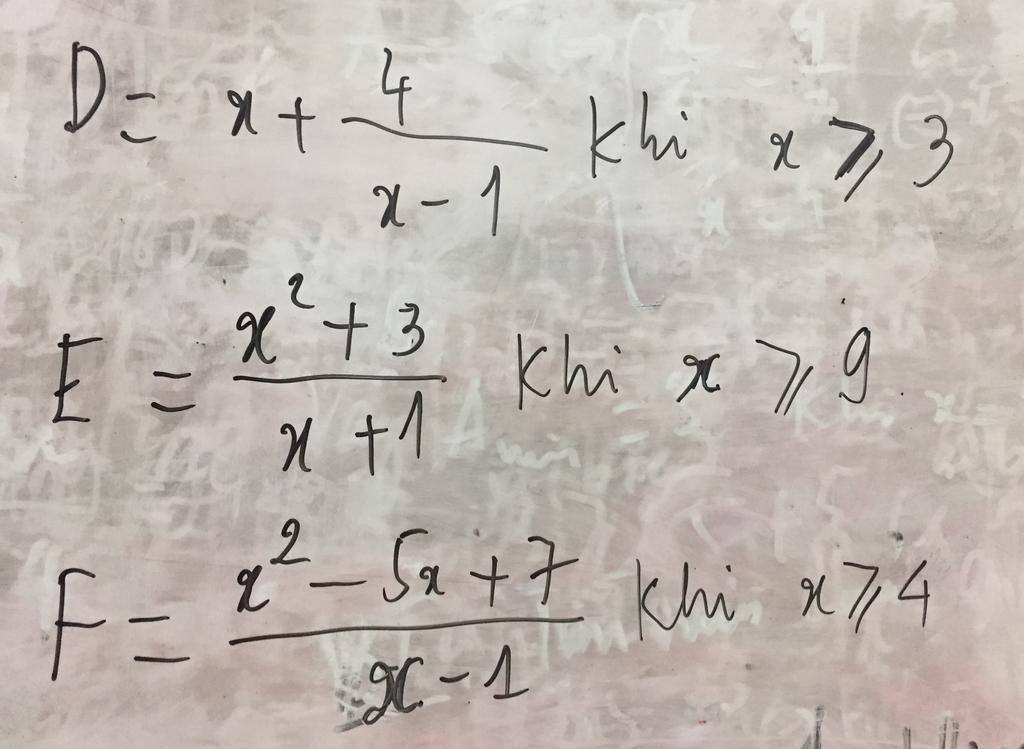 D = x + 4/(x - 1) khi x ⩾ 3
E = (x² + 3)/(x + 1) khi x ⩾ 9.
F = (x² - 5x + 7)/(x - 1) khi x ⩾ 4